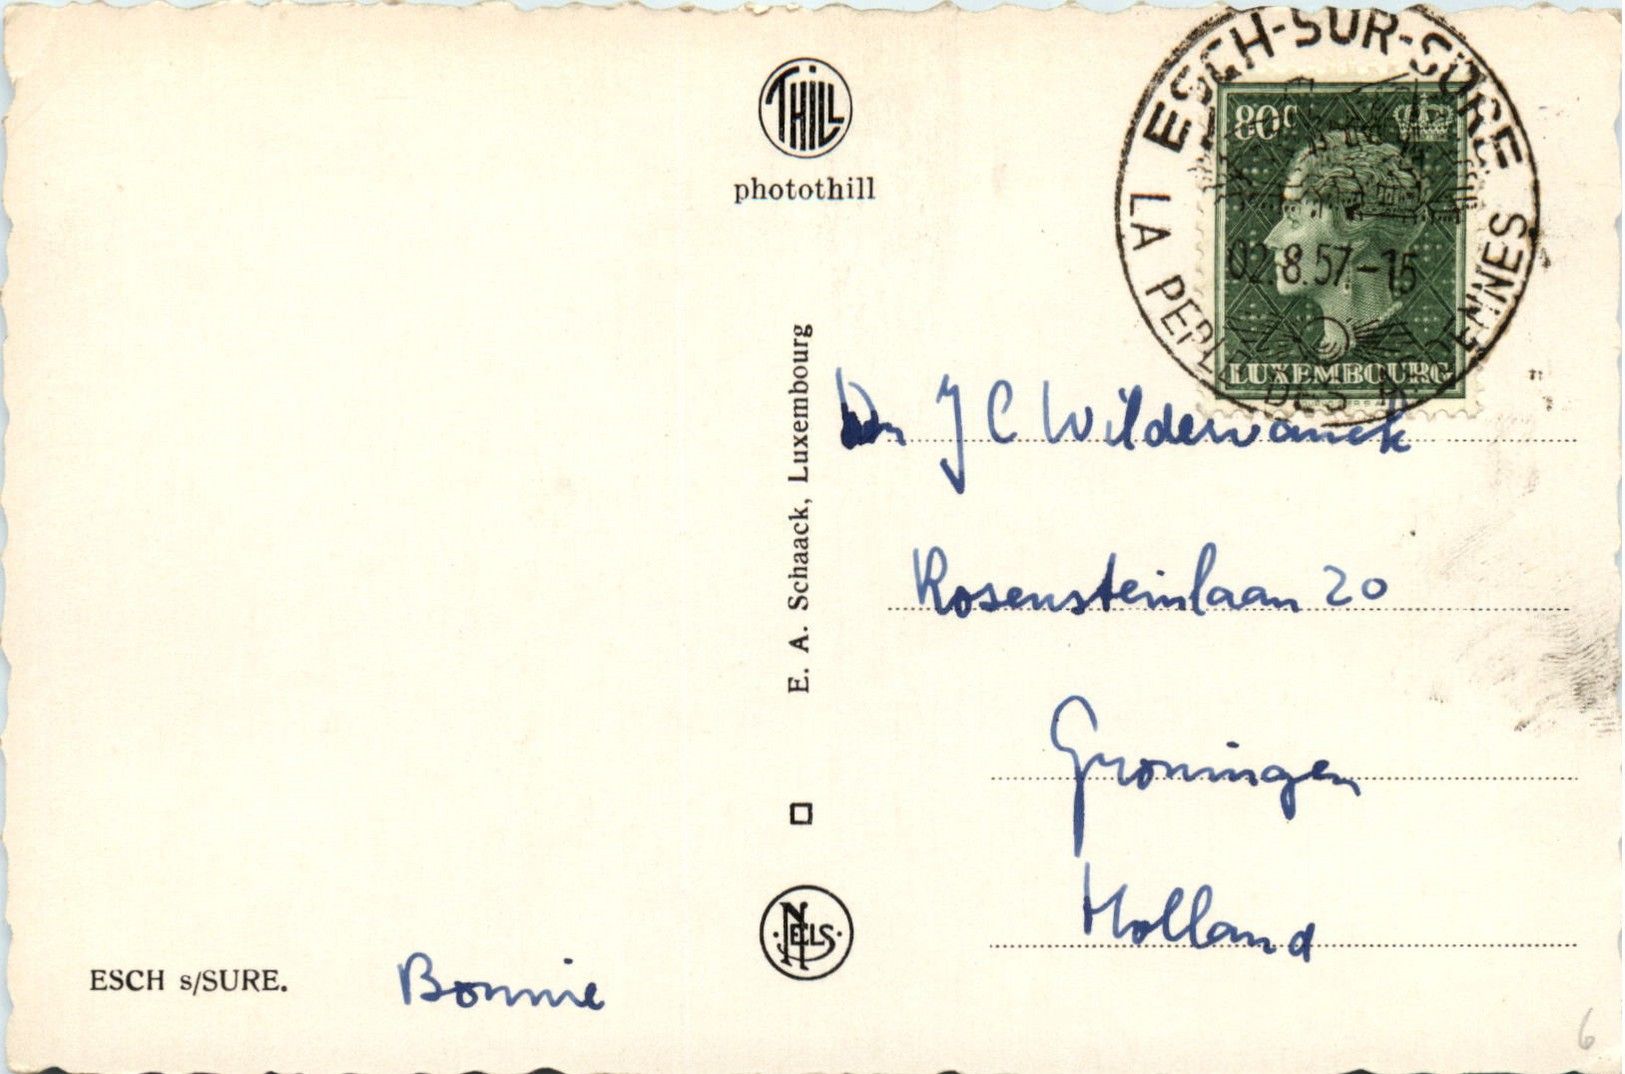 THILL
photothill
ESCH-SUR-SÛRE
80c
02.8.57-15
LA PERLE DES ARDENNES
LUXEMBOURG
E. A. Schaack, Luxembourg
Dr J C Wildervanck
Rosensteinlaan 20
Groningen
Holland
NELS
ESCH s/SURE.
Bonnie
6